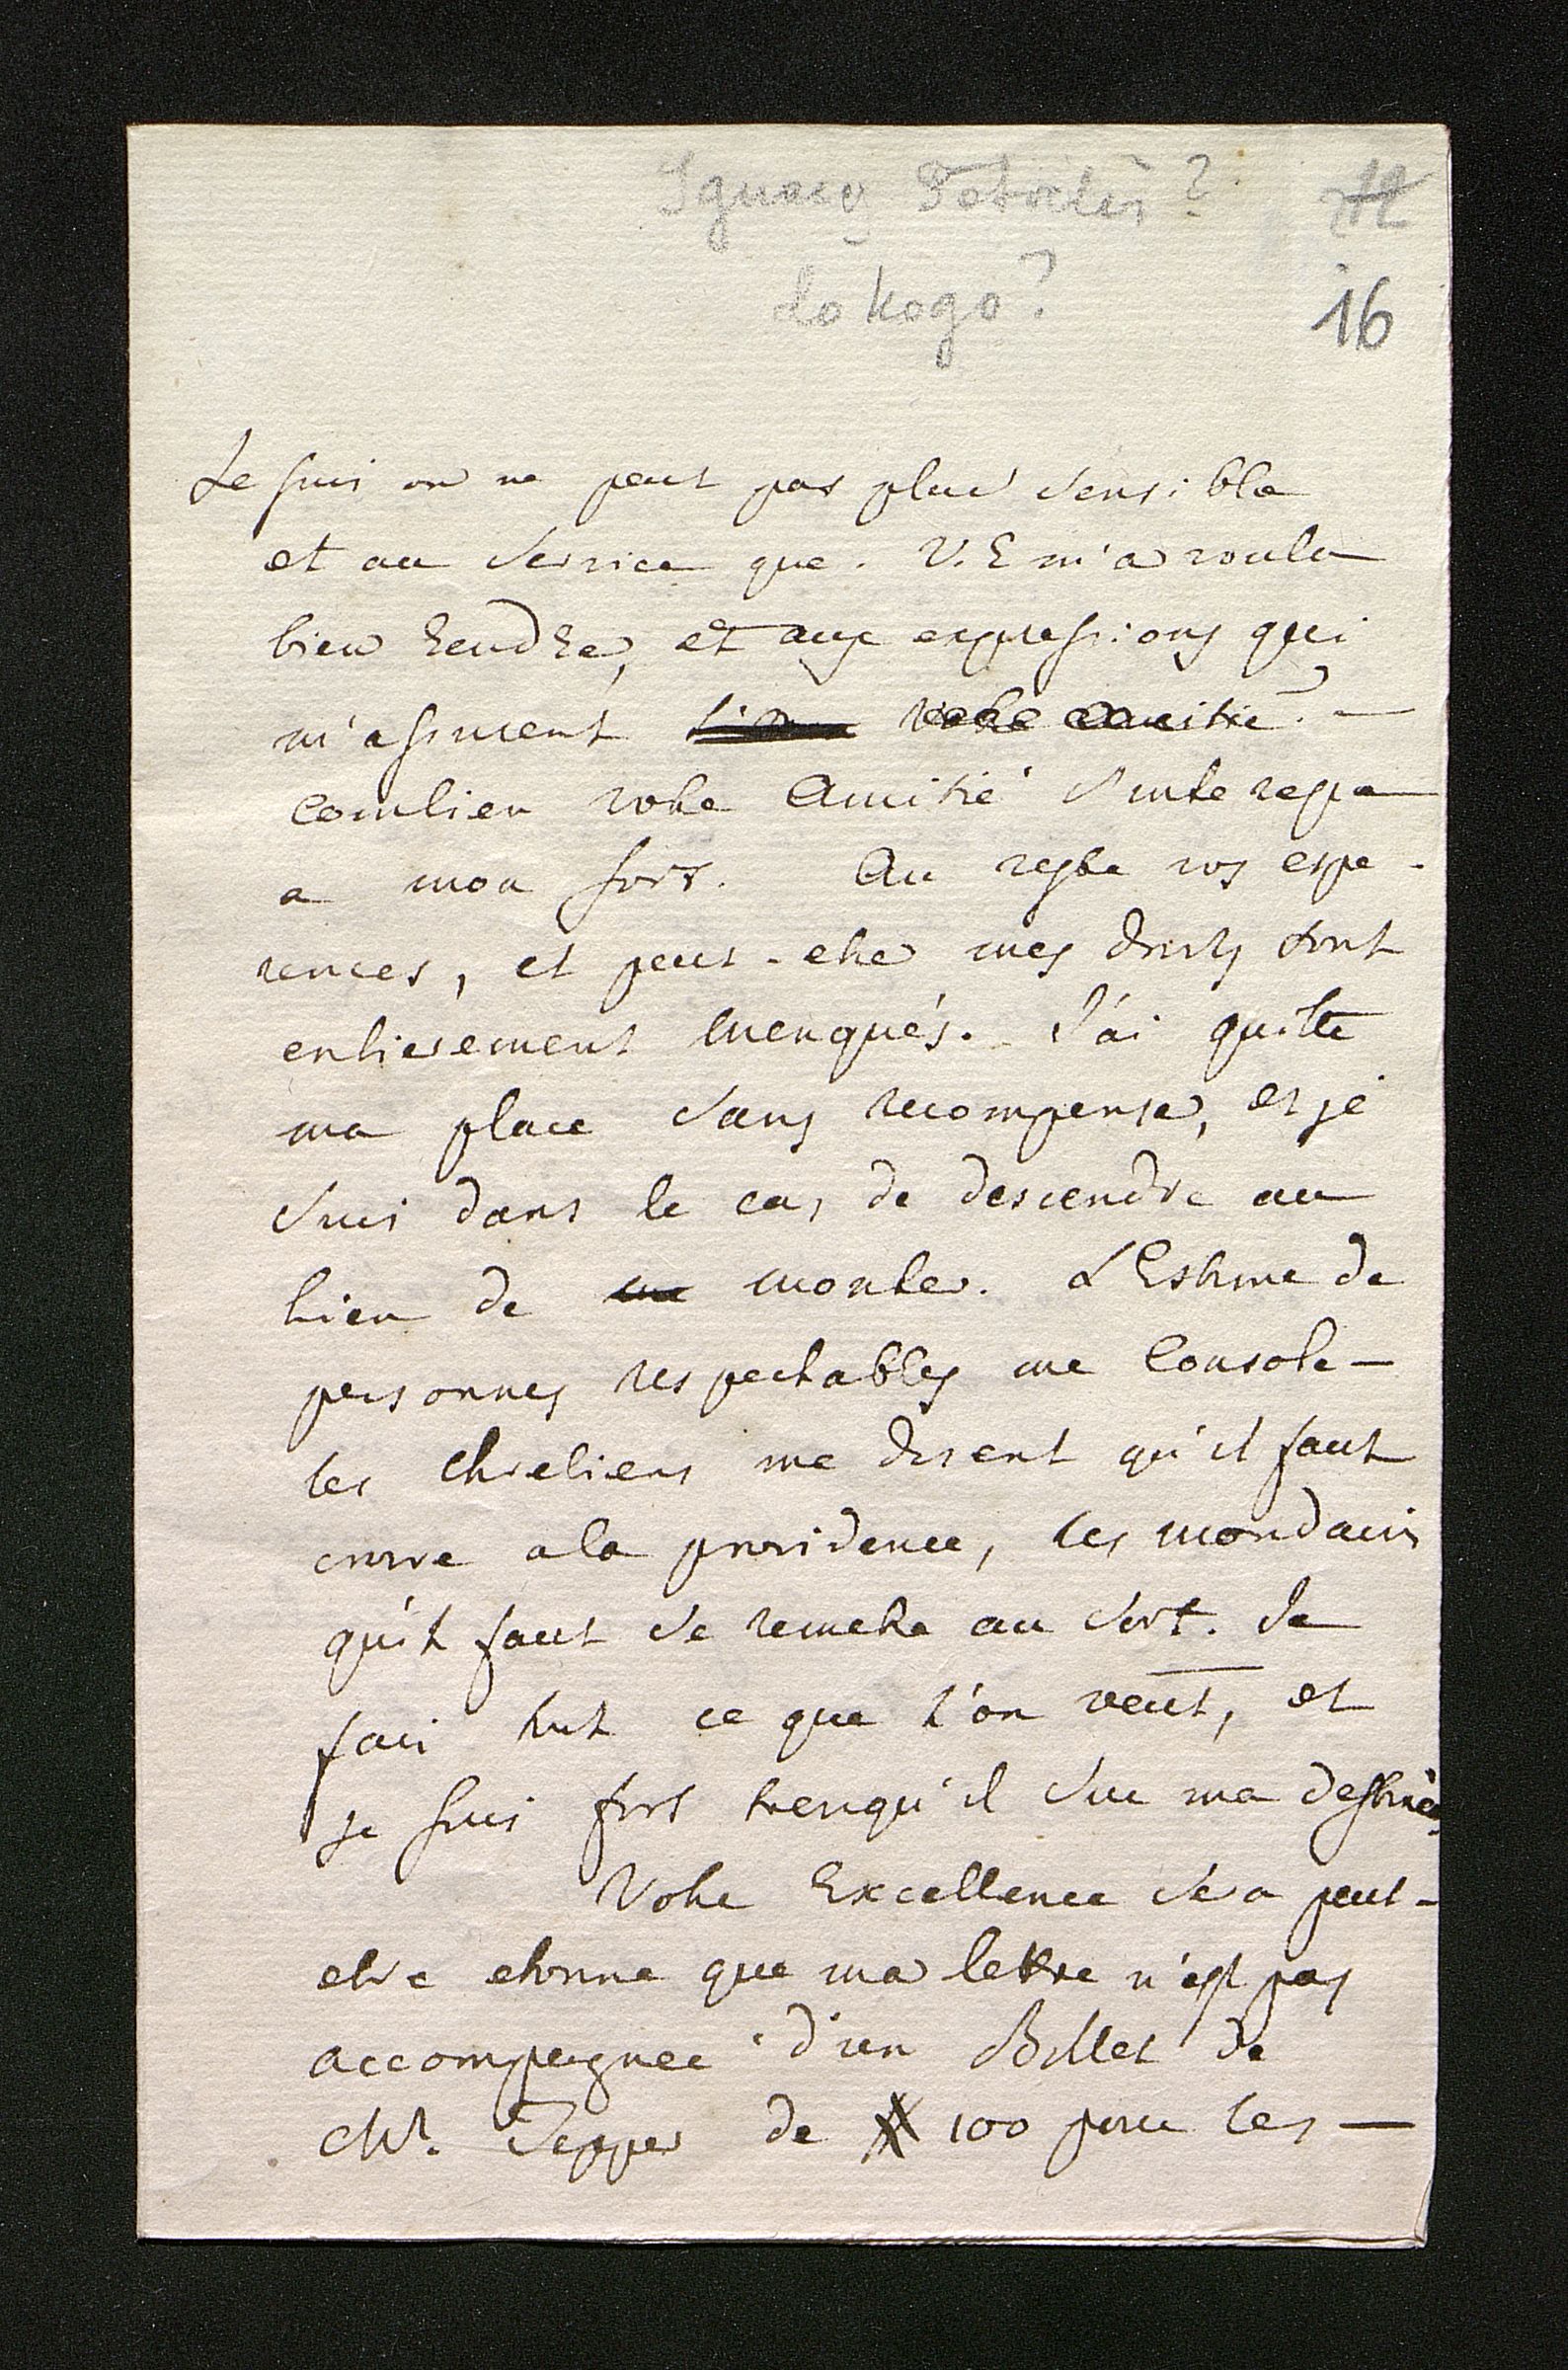 Ignacy Potocki?
do kogo?
16
Je suis on ne peut pas plus sensible
et au service que. V.E m'a voulu
bien rendre, et aux expressions qui
m'assurent votre amitié. —
combien votre Amitié s'interesse
a mon sort. Au reste vos espe-
rences, et peut-etre mes droits sont
entierement menqués. J'ai quitte
ma place sans recompense, et je
suis dans le cas de descendre au
lieu de monter. L'Estime de
personnes respectables me Console —
les chretiens me disent qu'il faut
croire a la providence, les mondains
qu'il faut se remetre au sort. Je
fais tout ce que l'on veut, et
je suis fort trenquil sur ma destinée
Votre Excellence sera peut-
etre etonne que ma lettre n'est pas
accompagnee d'un Billet de
Mr. Tepper de # 100 pour les —